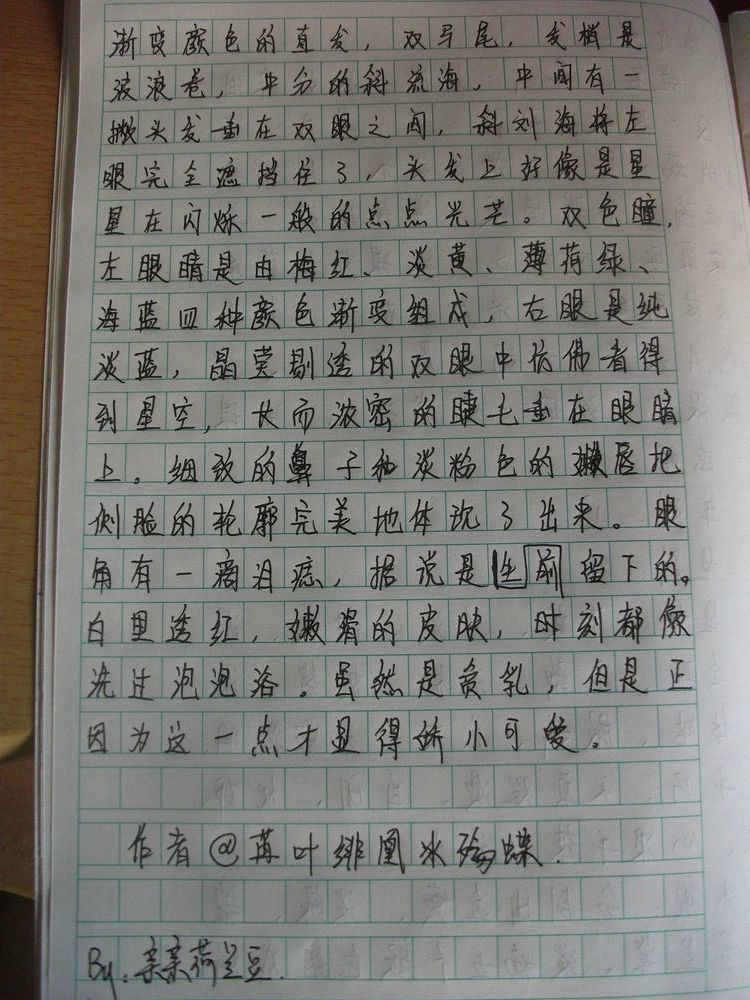 渐变颜色的直发，双马尾，发梢是
波浪卷，中分的斜流海，中间有一
撇头发垂在双眼之间，斜刘海将左
眼完全遮挡住了，头发上好像是星
星在闪烁一般的点点光芒。双色瞳，
左眼睛是由梅红、淡黄、薄荷绿、
海蓝四种颜色渐变组成，右眼是纯
淡蓝，晶莹剔透的双眼中仿佛看得
到星空，长而浓密的睫毛垂在眼睛
上。细致的鼻子和淡粉色的嫩唇把
侧脸的轮廓完美地体现了出来。眼
角有一滴泪痣，据说是生前留下的。
白里透红，嫩滑的皮肤，时刻都像
洗过泡泡浴。虽然是贫乳，但是正
因为这一点才显得娇小可爱。
作者@苒叶绯凰冰殇蝶.
By:亲亲荷兰豆.